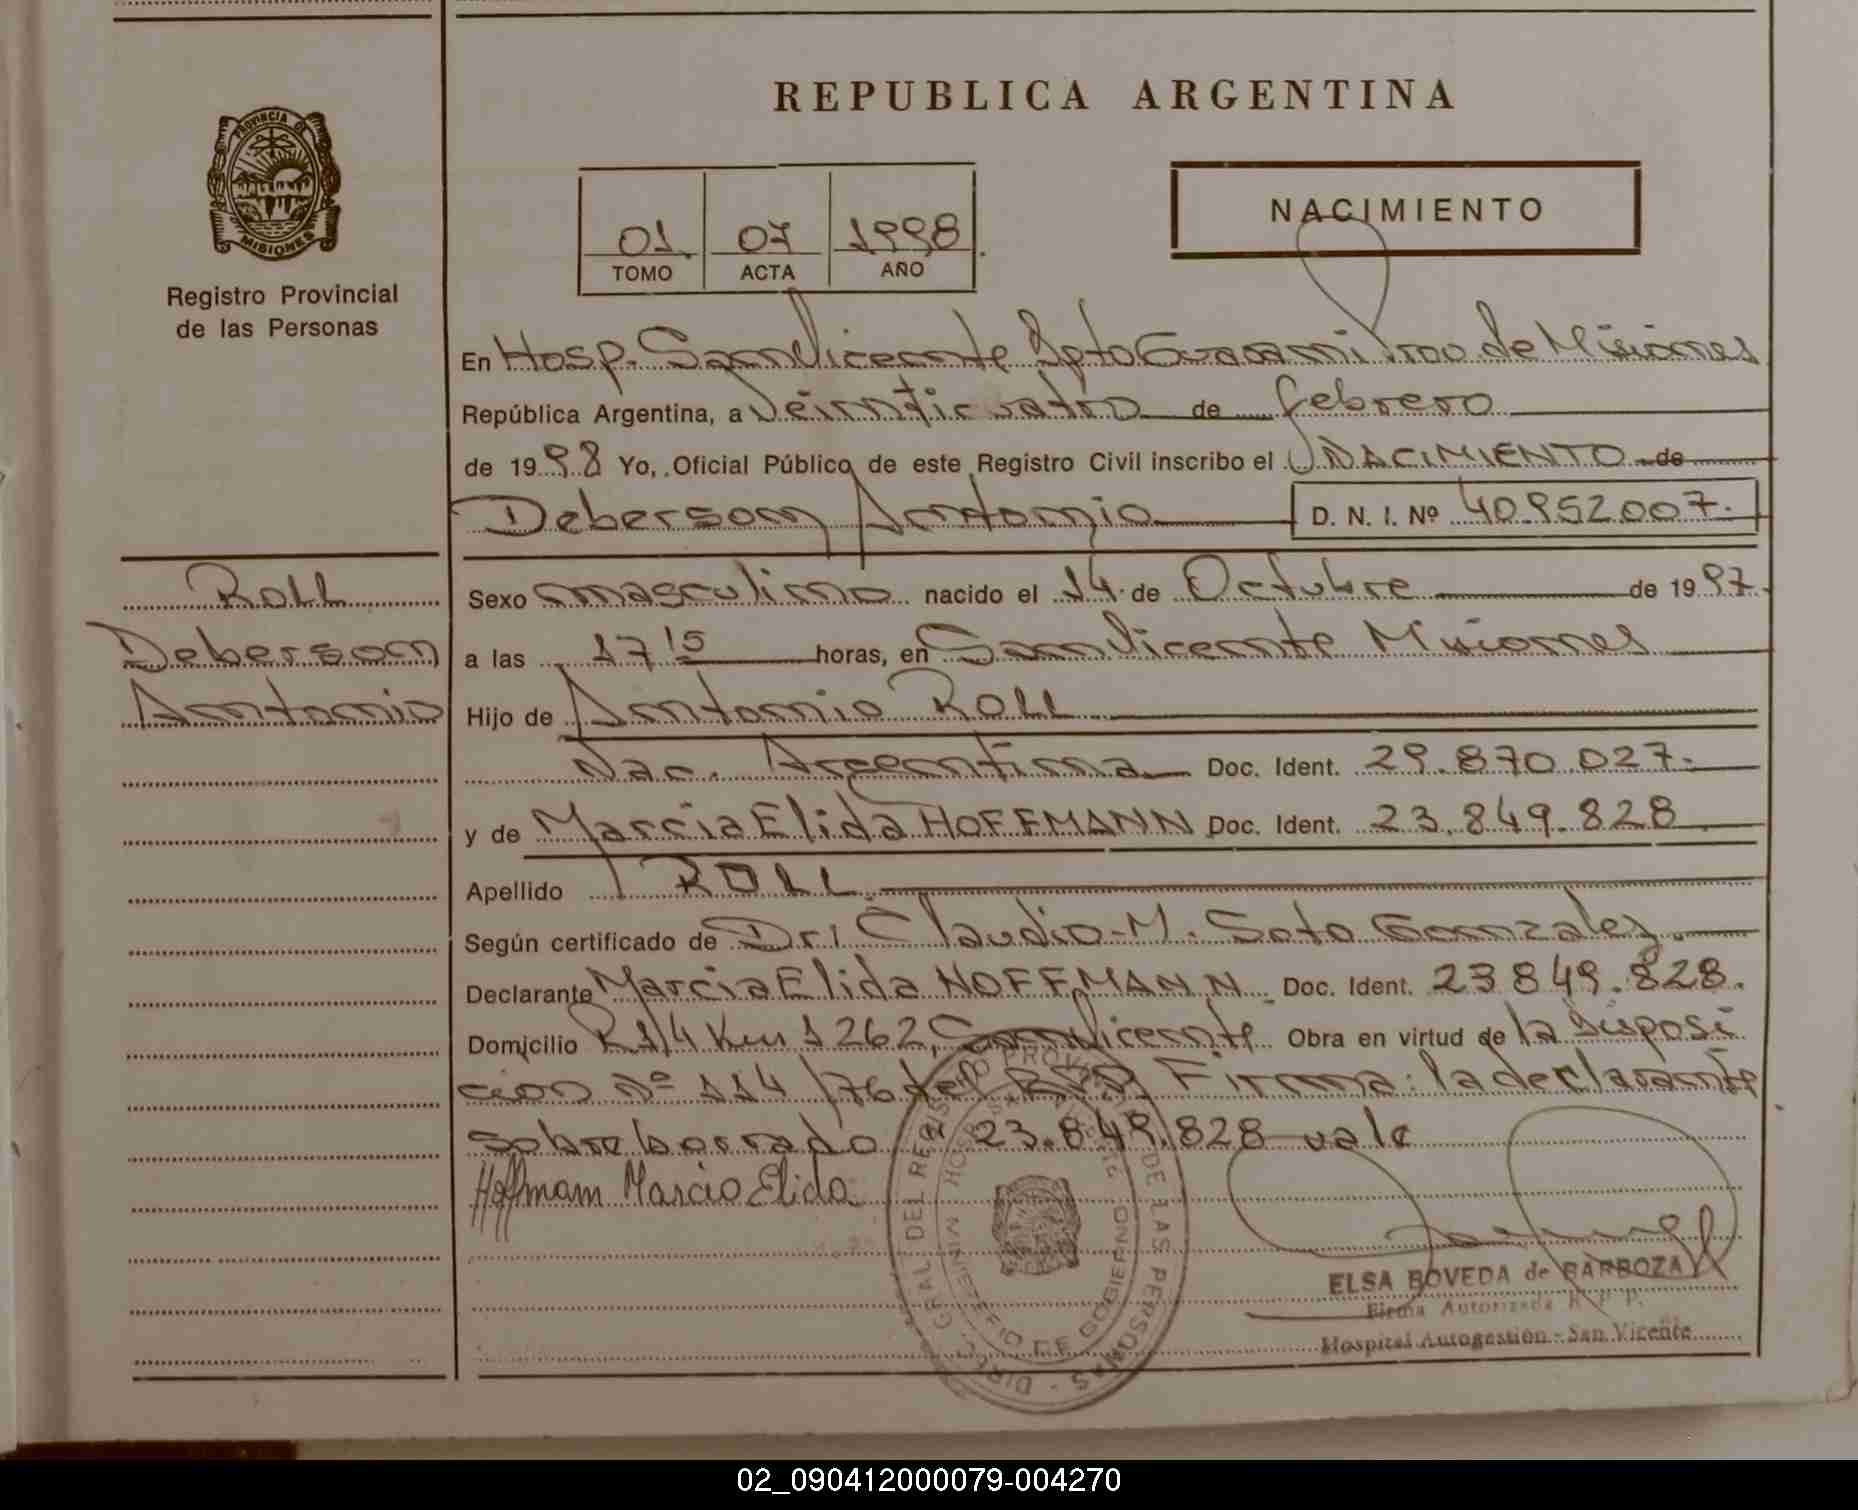 REPUBLICA ARGENTINA
PROVINCIA DE
MISIONES
Registro Provincial
de las Personas
01 07 1998
TOMO ACTA AÑO
NACIMIENTO
En Hosp. San Vicente Dpto Guarani Prov. de Misiones
República Argentina, a Veinticuatro de febrero
de 1998 Yo, Oficial Público de este Registro Civil inscribo el NACIMIENTO de
Deberson Antonio D. N. I. Nº 40.952.007.
ROLL
Deberson
Antonio
Sexo masculino nacido el 14 de Octubre de 1997.
a las 17 15 horas, en San Vicente Misiones
Hijo de Antonio ROLL
Nac. Argentina Doc. Ident. 29.870.027.
y de Marcia Elida HOFFMANN Doc. Ident. 23.849.828
Apellido ROLL
Según certificado de Dr: Claudio M. Soto Gonzalez.
Declarante Marcia Elida HOFFMANN Doc. Ident. 23 849.828.
Domicilio R 14 Km 1262, San Vicente Obra en virtud de la disposi
cion Nº 114/76 del R.P.P. Firma: la declarante
sobre borrado 23.849.828 vale
Hoffmam Marcia Elida
DIREC. GRAL DEL REGISTRO PROVINCIAL DE LAS PERSONAS
MINISTERIO DE GOBIERNO
HOSP. SAN VICENTE
ELSA BOVEDA de BARBOZA
Firma Autorizada R. P. P.
Hospital Autogestión - San Vicente
02_090412000079-004270